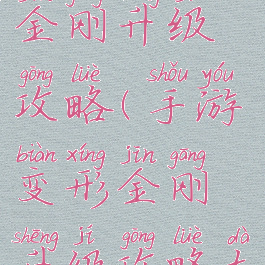 金刚升级
gōng lüè shǒu yóu
攻略(手游
biàn xíng jīn gāng
变形金刚
shēng jí gōng lüè dà
升级攻略大